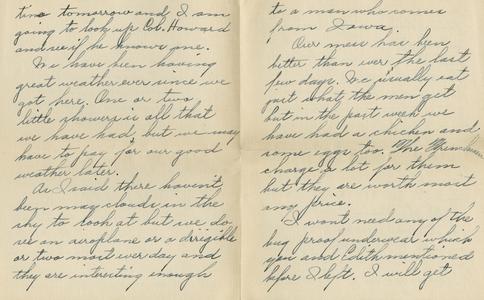 time tomorrow and I am
going to look up Col. Howard
and see if he knows me.
We have been having
great weather ever since we
got here. One or two
little showers is all that
we have had but we may
have to pay for our good
weather later.
As I said there haven't
been many clouds in the
sky to look at but we do
see an aeroplane or a dirigible
or two most every day and
they are interesting enough
to a man who comes
from Iowa.
Our mess has been
better than ever the last
few days. We usually eat
just what the men get
but in the past week we
have had a chicken and
some eggs too. The Frenchmen
charge a lot for them
but they are worth most
any price.
I wont need any of the
bug proof underwear which
you and Edith mentioned
before I left. I will get